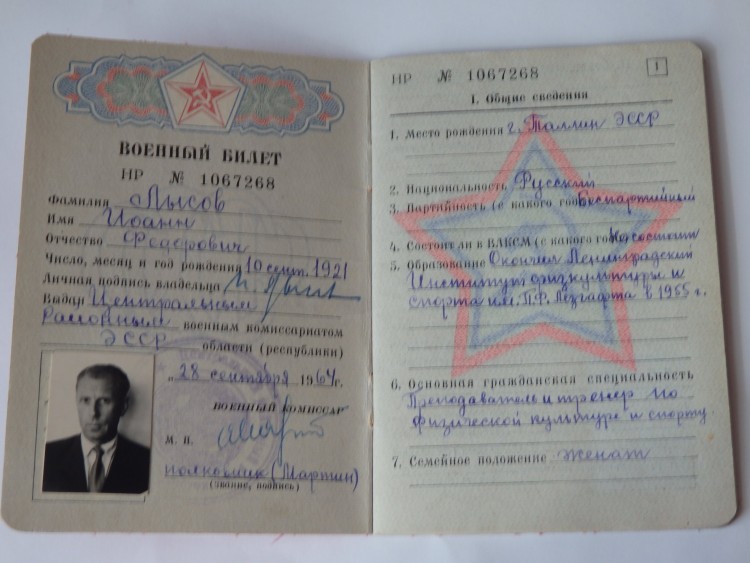 ВОЕННЫЙ БИЛЕТ
НР № 1067268
Фамилия Лысов
Имя Иоанн
Отчество Федорович
Число, месяц и год рождения 10 сент. 1921
Личная подпись владельца И. Лысов
Выдан Центральным
Районным военным комиссариатом
ЭССР области (республики)
„28 сентября 1964г.
ВОЕННЫЙ КОМИССАР
М. П.
полковник (Мартин)
(звание, подпись)
НР № 1067268
1
I. Общие сведения
1. Место рождения г. Таллин ЭССР
2. Национальность Русский
3. Партийность (с какого года) беспартийный
4. Состоит ли в ВЛКСМ (с какого года) Не состоит
5. Образование Окончил Ленинградский
Институт физкультуры и
спорта им. П.Ф. Лезгафта в 1955 г.
6. Основная гражданская специальность
Преподаватель и тренер по
физической культуре и спорту.
7. Семейное положение женат